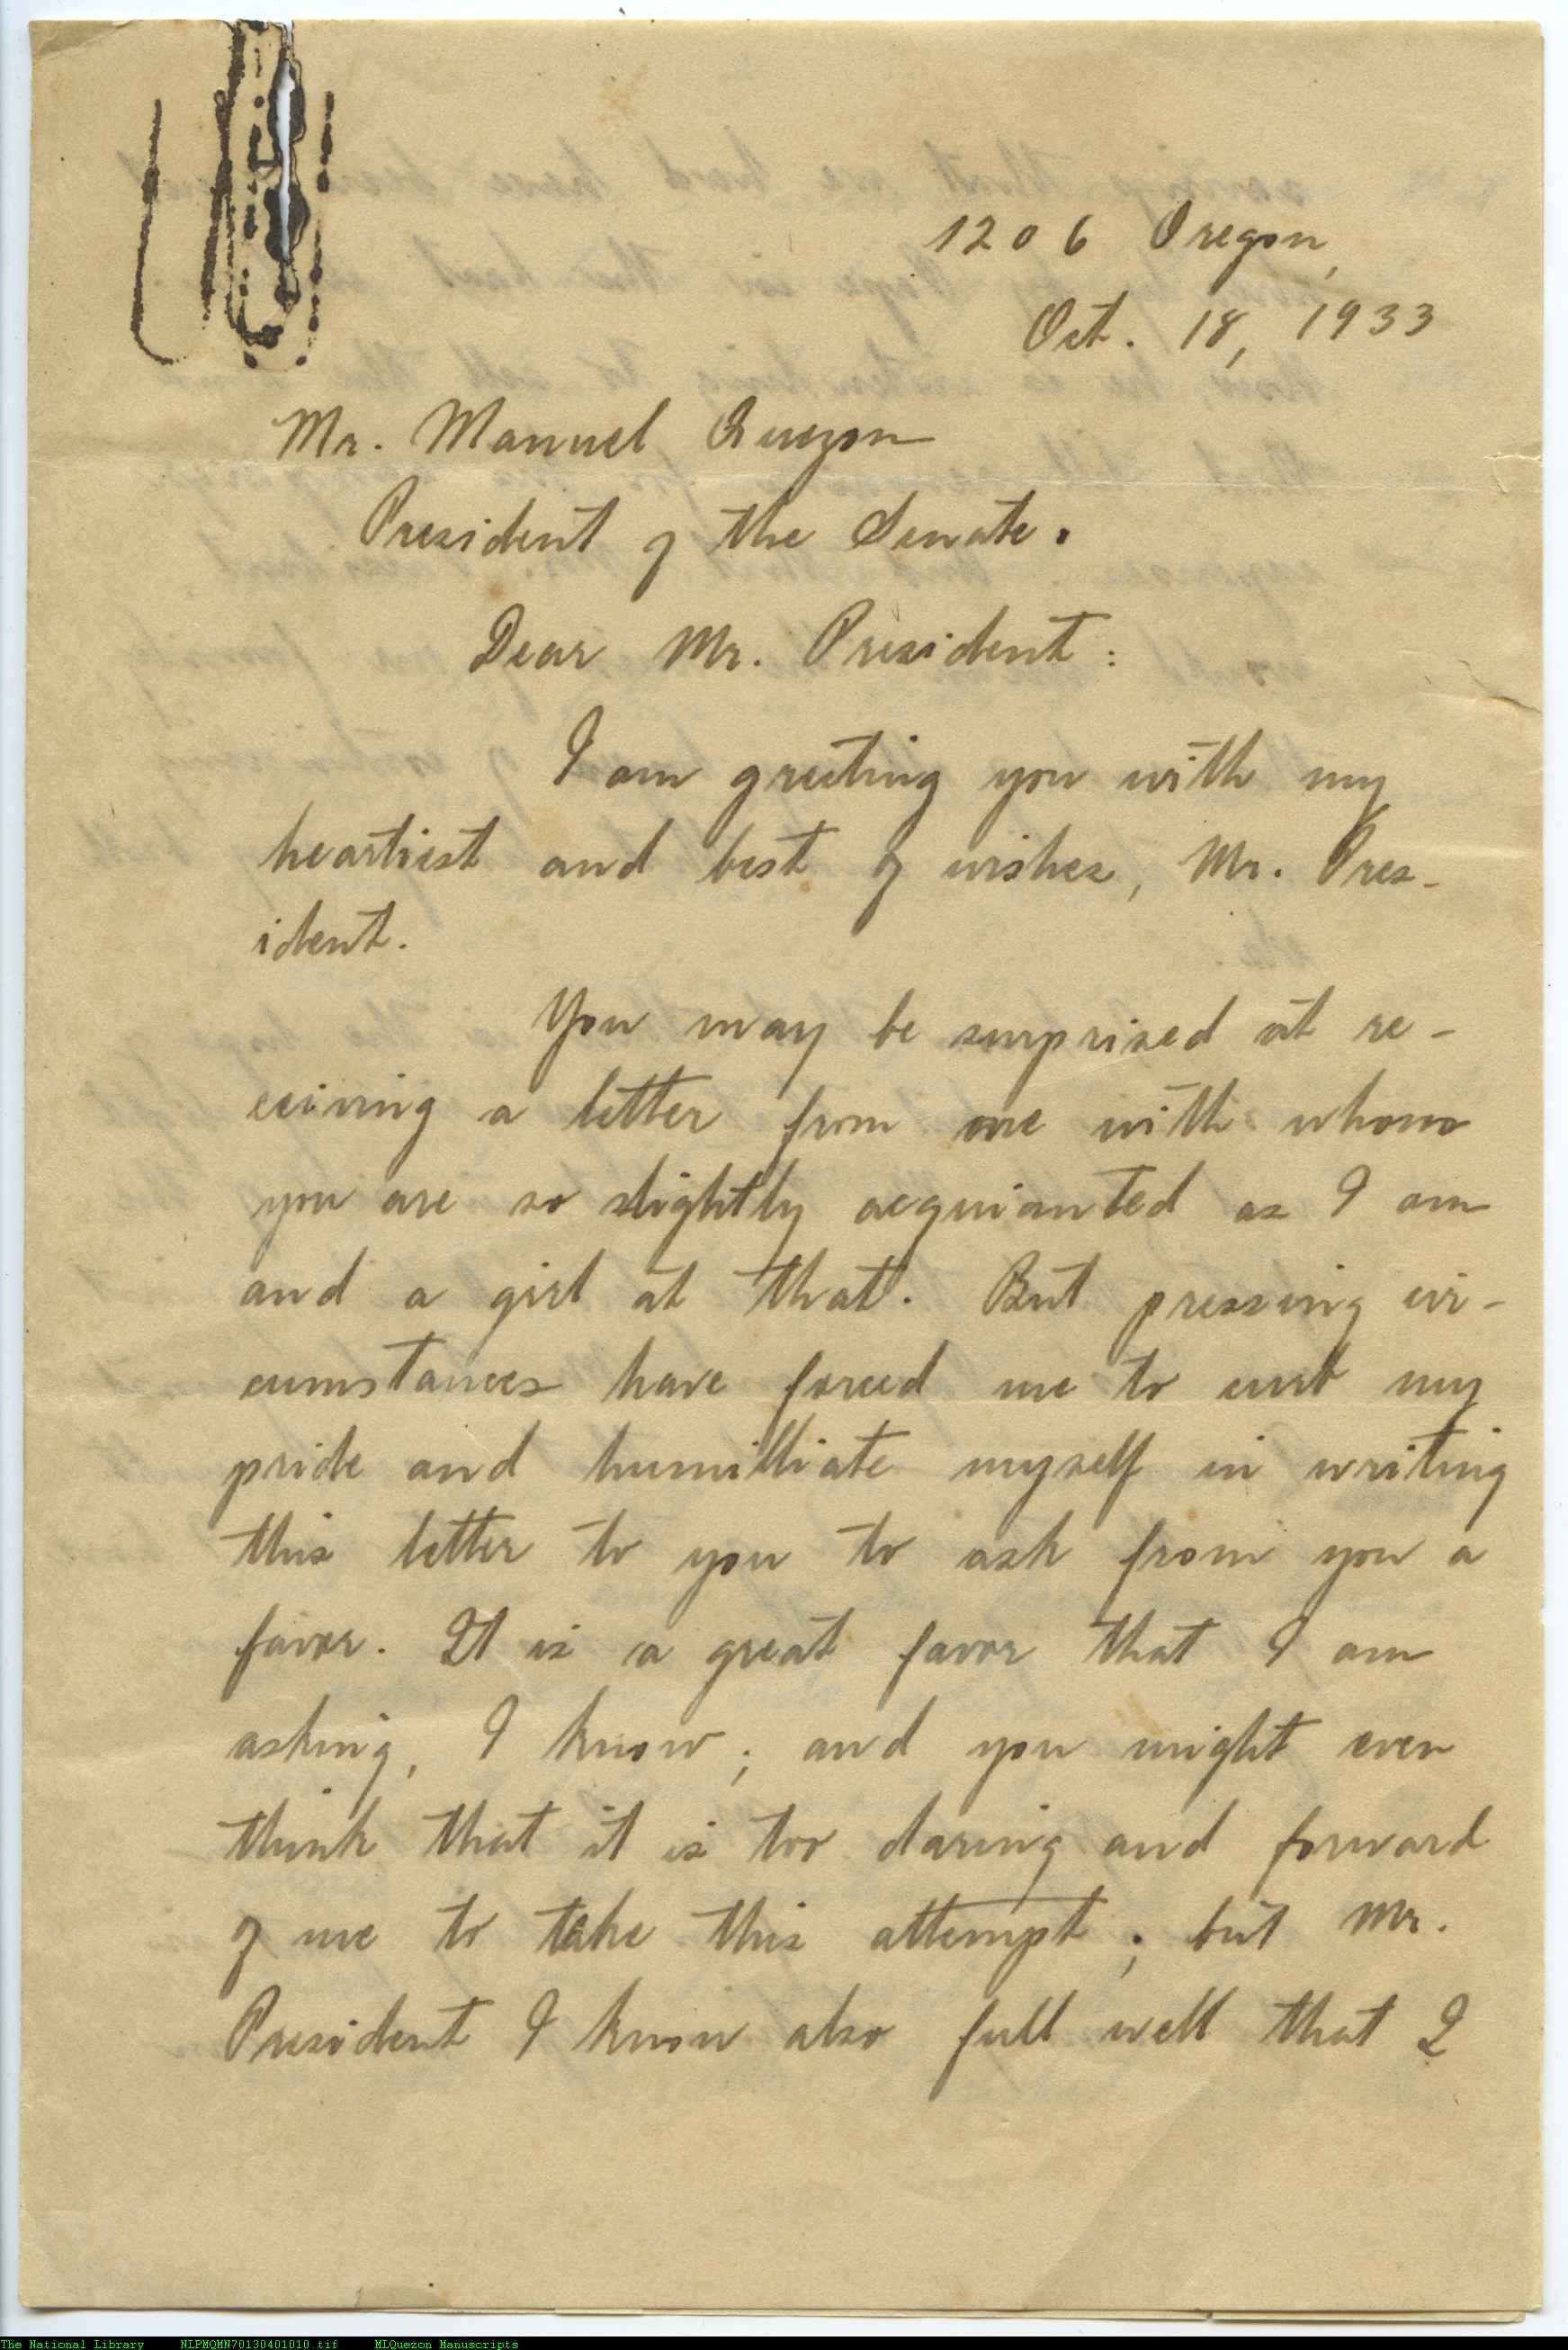 1206 Oregon,
Oct. 18, 1933
Mr. Manuel Quezon
President of the Senate.
Dear Mr. President:
I am greeting you with my
heartiest and best of wishes, Mr. Pres-
ident.
You may be surprised at re-
ceiving a letter from one with whom
you are so slightly acquianted as I am
and a girl at that. But pressing cir-
cumstances have forced me to curb my
pride and humilliate myself in writing
this letter to you to ask from you a
favor. It is a great favor that I am
asking, I know; and you might even
think that it is too daring and forward
of me to take this attempt; but Mr.
President I know also full well that I
The National Library NLPMQMN70130401010.tif MLQuezon Manuscripts